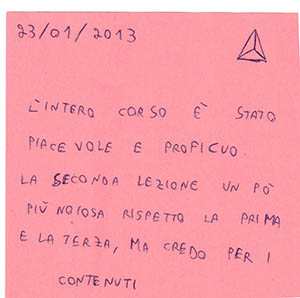 23/01/2013
L'INTERO CORSO È STATO
PIACEVOLE E PROFICUO.
LA SECONDA LEZIONE UN PÒ
PIÙ NOIOSA RISPETTO LA PRIMA
E LA TERZA, MA CREDO PER I
CONTENUTI